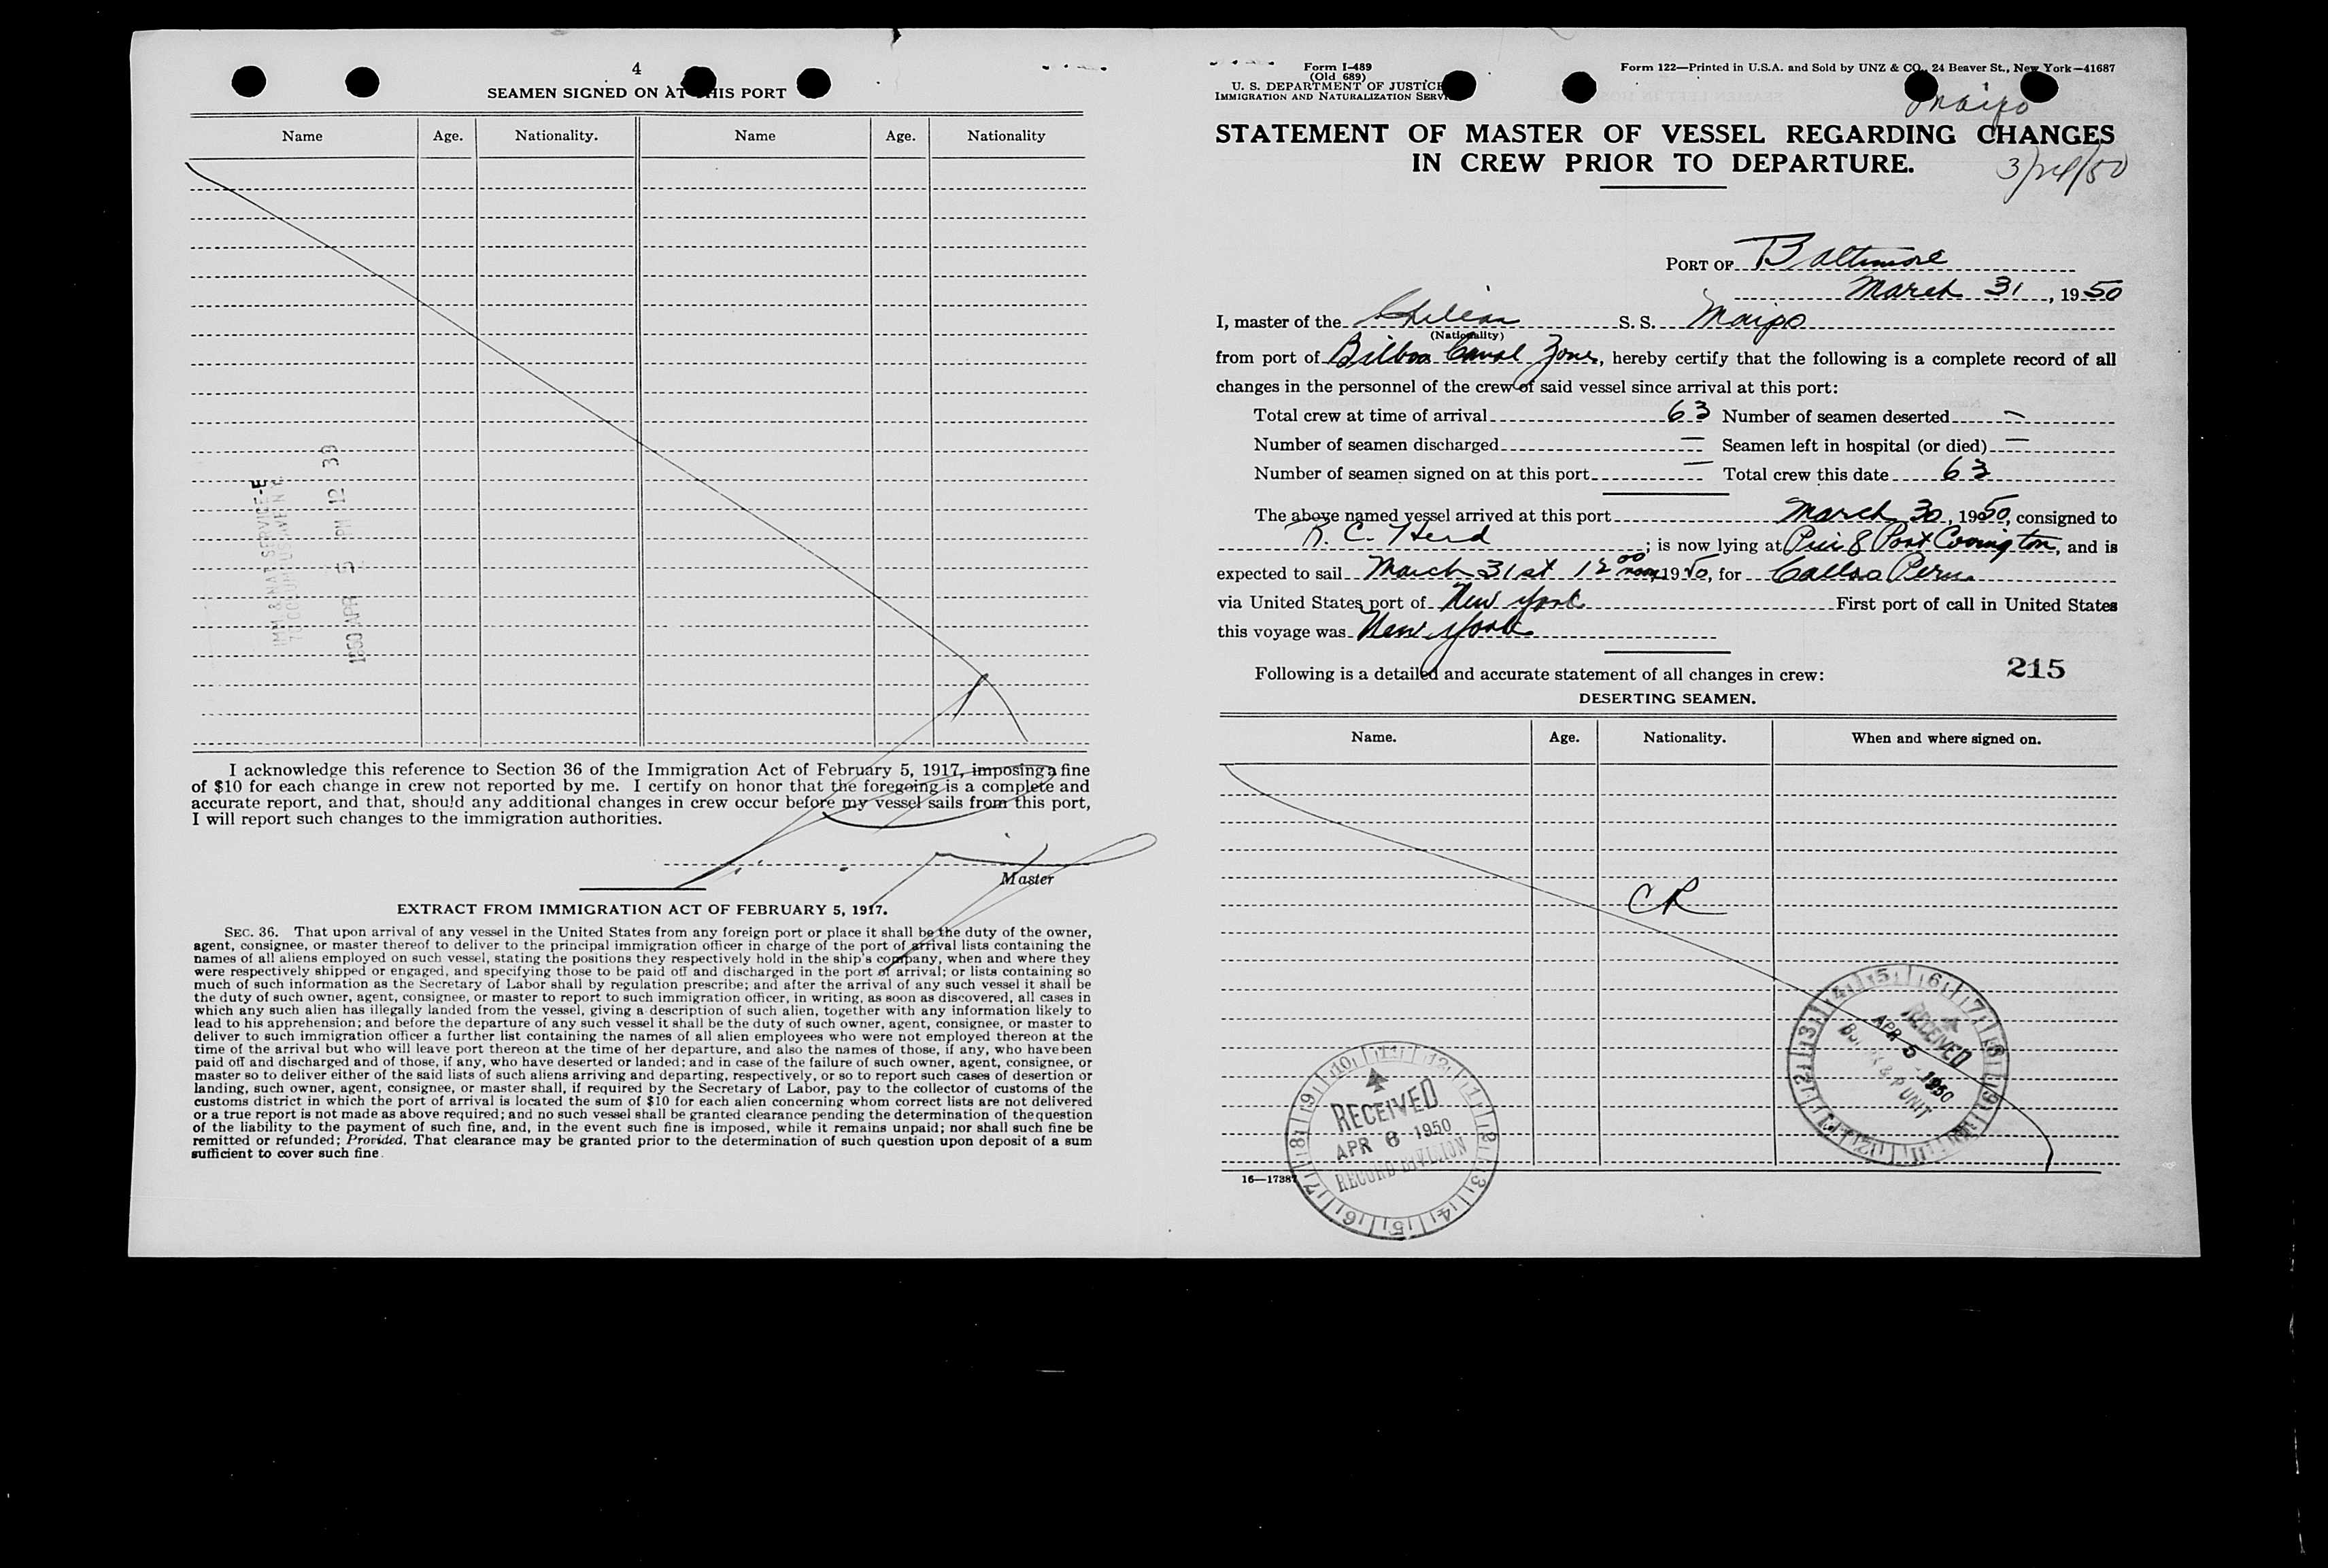 4
SEAMEN SIGNED ON AT THIS PORT
Name Age. Nationality. Name Age. Nationality
IMM. & NAT. SERVICE-E
1950 APR 5 PM 12 39
I acknowledge this reference to Section 36 of the Immigration Act of February 5, 1917, imposing a fine
of $10 for each change in crew not reported by me. I certify on honor that the foregoing is a complete and
accurate report, and that, should any additional changes in crew occur before my vessel sails from this port,
I will report such changes to the immigration authorities.
Master
EXTRACT FROM IMMIGRATION ACT OF FEBRUARY 5, 1917.
SEC. 36. That upon arrival of any vessel in the United States from any foreign port or place it shall be the duty of the owner,
agent, consignee, or master thereof to deliver to the principal immigration officer in charge of the port of arrival lists containing the
names of all aliens employed on such vessel, stating the positions they respectively hold in the ship's company, when and where they
were respectively shipped or engaged, and specifying those to be paid off and discharged in the port of arrival; or lists containing so
much of such information as the Secretary of Labor shall by regulation prescribe; and after the arrival of any such vessel it shall be
the duty of such owner, agent, consignee, or master to report to such immigration officer, in writing, as soon as discovered, all cases in
which any such alien has illegally landed from the vessel, giving a description of such alien, together with any information likely to
lead to his apprehension; and before the departure of any such vessel it shall be the duty of such owner, agent, consignee, or master to
deliver to such immigration officer a further list containing the names of all alien employees who were not employed thereon at the
time of the arrival but who will leave port thereon at the time of her departure, and also the names of those, if any, who have been
paid off and discharged and of those, if any, who have deserted or landed; and in case of the failure of such owner, agent, consignee, or
master so to deliver either of the said lists of such aliens arriving and departing, respectively, or so to report such cases of desertion or
landing, such owner, agent, consignee, or master shall, if required by the Secretary of Labor, pay to the collector of customs of the
customs district in which the port of arrival is located the sum of $10 for each alien concerning whom correct lists are not delivered
or a true report is not made as above required; and no such vessel shall be granted clearance pending the determination of the question
of the liability to the payment of such fine, and, in the event such fine is imposed, while it remains unpaid; nor shall such fine be
remitted or refunded; Provided, That clearance may be granted prior to the determination of such question upon deposit of a sum
sufficient to cover such fine.
Form I-489
(Old 689)
U. S. DEPARTMENT OF JUSTICE
IMMIGRATION AND NATURALIZATION SERVICE
Form 122—Printed in U.S.A. and Sold by UNZ & CO., 24 Beaver St., New York—41687
Maipo
STATEMENT OF MASTER OF VESSEL REGARDING CHANGES
IN CREW PRIOR TO DEPARTURE.
3/24/50
PORT OF Baltimore
March 31, 1950
I, master of the Chilean S. S. Maipo
(Nationality)
from port of Bilboa Canal Zone, hereby certify that the following is a complete record of all
changes in the personnel of the crew of said vessel since arrival at this port:
Total crew at time of arrival 63 Number of seamen deserted —
Number of seamen discharged — Seamen left in hospital (or died) —
Number of seamen signed on at this port — Total crew this date 63
The above named vessel arrived at this port March 30, 1950, consigned to
R. C. Herd; is now lying at Pier 8 Port Covington, and is
expected to sail March 31st 12 00 noon, 1950, for Callao Peru
via United States port of New York First port of call in United States
this voyage was New York
Following is a detailed and accurate statement of all changes in crew:
215
DESERTING SEAMEN.
Name. Age. Nationality. When and where signed on.
CR
RECEIVED
APR 5 - 1950
UNIT
RECEIVED
APR 6 1950
RECORD DIVISION
16—17387